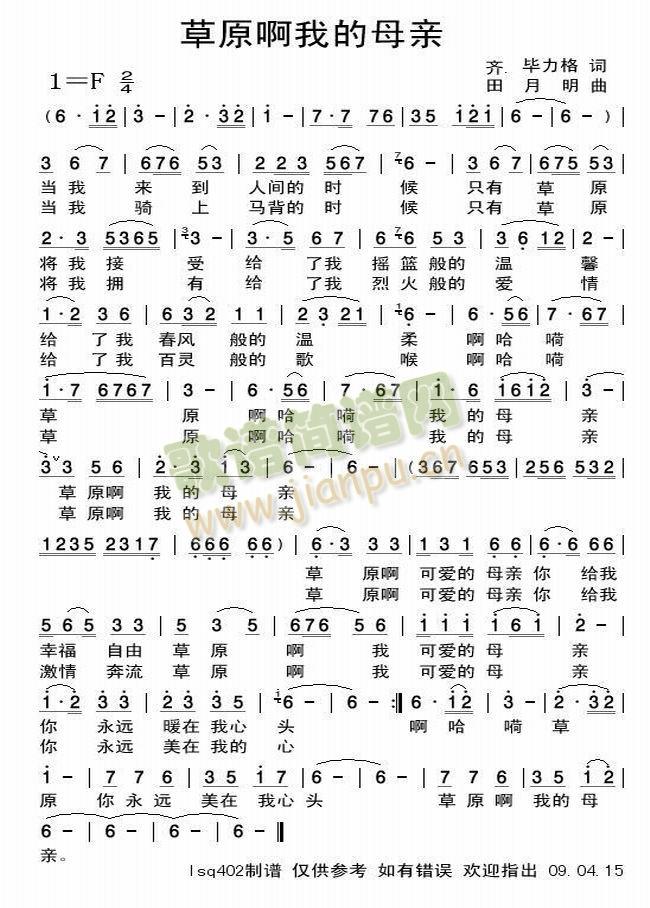 草原啊我的母亲
齐.毕力格 词
1=F 2/4 田 月 明 曲
(6·12|3-|2·32|1-|7·7 76|35 121|6-|6-)|
3 6 7|676 53|2 2 3 567|76-|3 6 7|675 53|
当我 来 到 人间的 时 候 只有 草 原
当我 骑 上 马背的 时 候 只有 草 原
2·3 5365|33-|3·5 67|676 53|3 6 12|2-|
将我 接 受 给 了我 摇篮般的 温 馨
将我 拥 有 给 了我 烈火般的 爱 情
1·2 36|632 11|2321|16-|6·56|7·67|
给 了我 春风 般的 温 柔 啊哈 嗬
给 了我 百灵 般的 歌 喉 啊哈 嗬
1·7 6767|3-|6·56|7·67|1·6 1612|3-|
草 原 啊哈 嗬 我的母 亲
草 原 啊哈 嗬 我的母 亲
3 3 56|2·3 13|6-|6-|(367 653|256 532|
草 原啊 我 的 母 亲
草 原啊 我 的 母 亲
1235 2317|666 66)|6·3 33|131 66|6·6 66|
草 原啊 可爱的 母亲你 给我
草 原啊 可爱的 母亲你 给我
565 33|5 3 5|676 56|111 1 61|5 3|
幸福 自由 草 原 啊 我 可爱的 母 亲
激情 奔流 草 原 啊 我 可爱的 母 亲
1·2 33|23 35|16-|6-:‖6·12|3-|2·32|
你 永远 暖在 我心 头 啊 哈 嗬 草
你 永远 美在 我的 心
1-|7 7 6|35 35|17|6-|6-|776|35 12|
原 你 永 远 美在 我心 头 草 原 啊 我的 母
6-|6-|6-|6-‖
亲。
lsq402制谱 仅供参考 如有错误 欢迎指出 09.04.15
歌谱简谱网
www.jianpu.cn